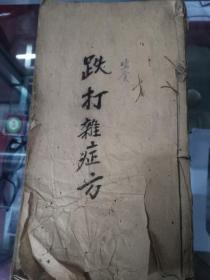 跌打雜症方